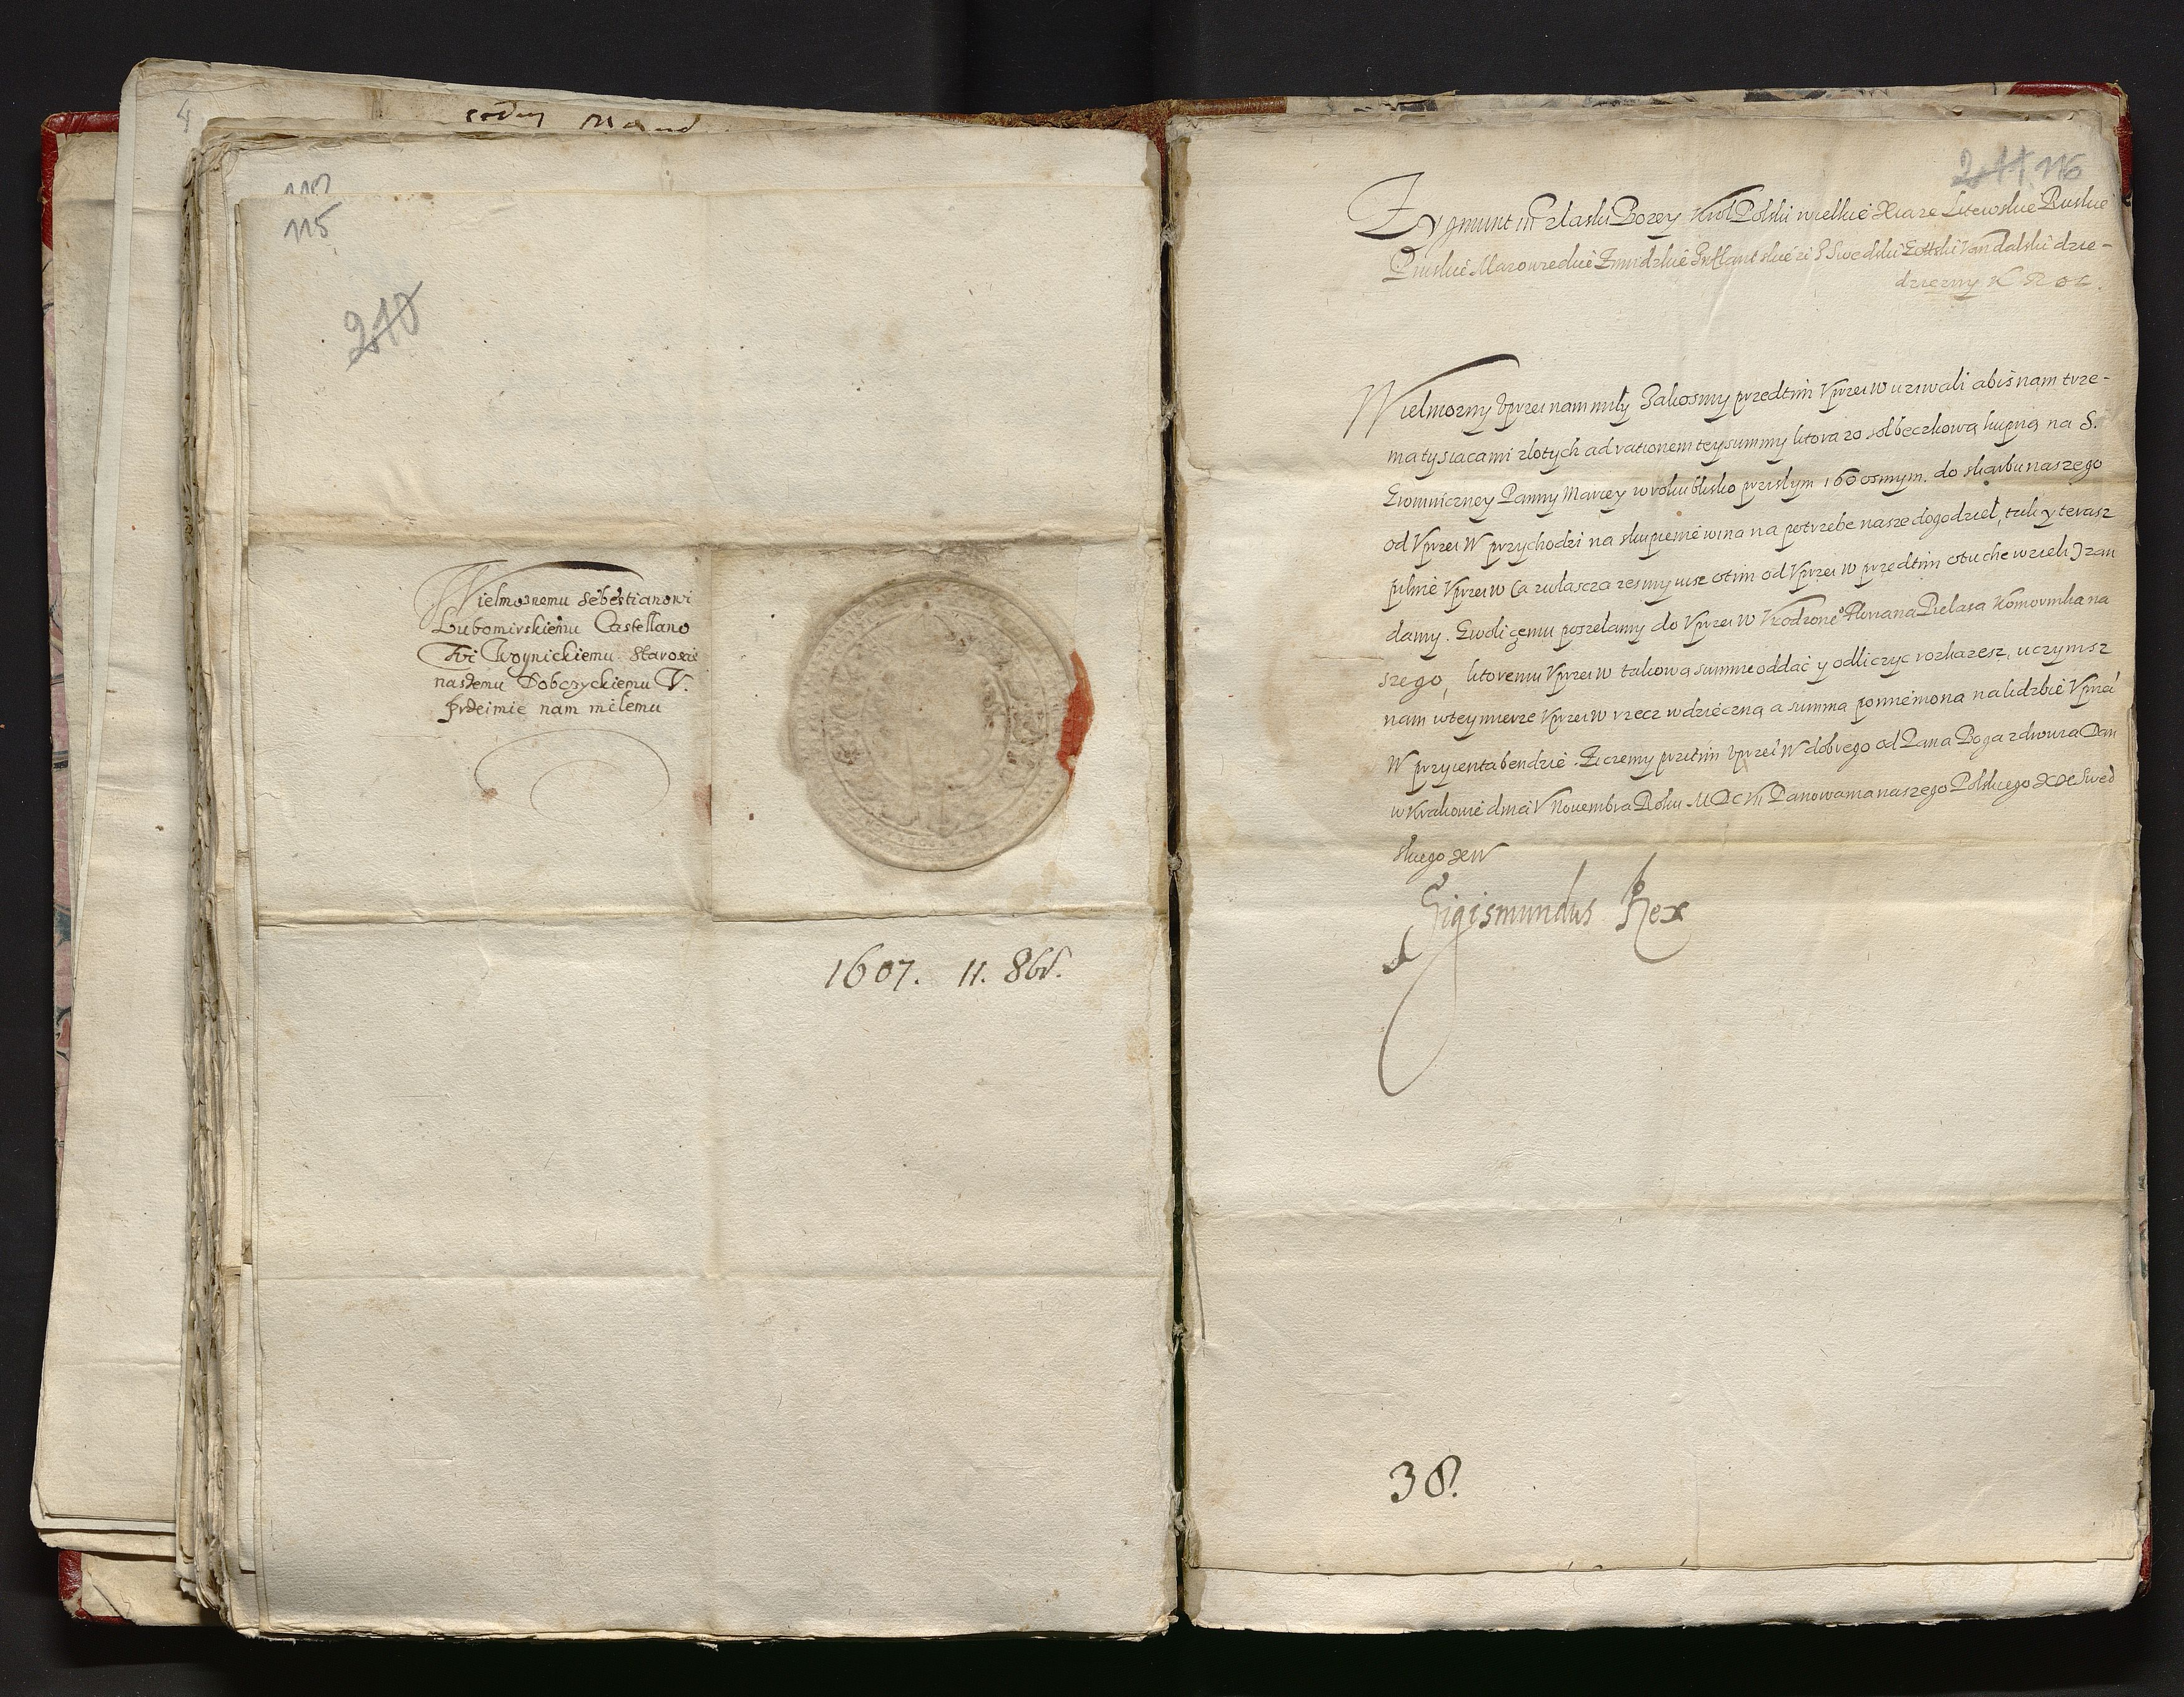 4
110
115
210
Wielmoznemu Sebestianowi
Lubomirskiemu Castellano
wi Woynickiemu Staroscie
naszemu Dobczyckiemu V.
przeimie nam milemu
1607. 11. 8br.
211 116
Zygmunt III z łaski Bozey Krol Polski wielkie Xiaze Litewskie Ruskie
Pruskie Mazowieckie Zmudzkie Inflantskie Swedski Gottski Vandalski dzie-
dziczny Krol.
Wielmozny Vprzei nam miły Jakosmy przedtim Vprzei W uziwali abiś nam trze-
ma tysiacami złotych ad rationem tey summy ktora zo sol beczkową kupną na S.
Gromniczney Panny Mariey w roku blisko przislym 160 osmym. do skarbu naszego
od Vprzei W przychodzi na skupienie wina na potrzebe nasze dogodzieł, tak y terasz
pilnie Vprzei W (a zwłascza zesmy iusz otim od Vprzei W przedtim otuche wzieli) zan
damy. Gwoli czemu poszełamy do Vprzei W Vrodzone° Floriana Pielasa Komornika na
szego, ktoremu Vprzei W takową summe oddać y odliczyc roskazesz, uczynisz
nam w tey mierze Vprzei W rzecz wdzieczną a summa pomieniona na lidzbie Vprzei
W przyienta bendzie. Ziczemy przitim Vprzei W dobrego od Pana Boga zdrowia Dan
w Krakowie dnia V Novembra Roku MDCVII Panowania naszego Polskiego XX Swed
skiego XIV
Sigismundus Rex
38.